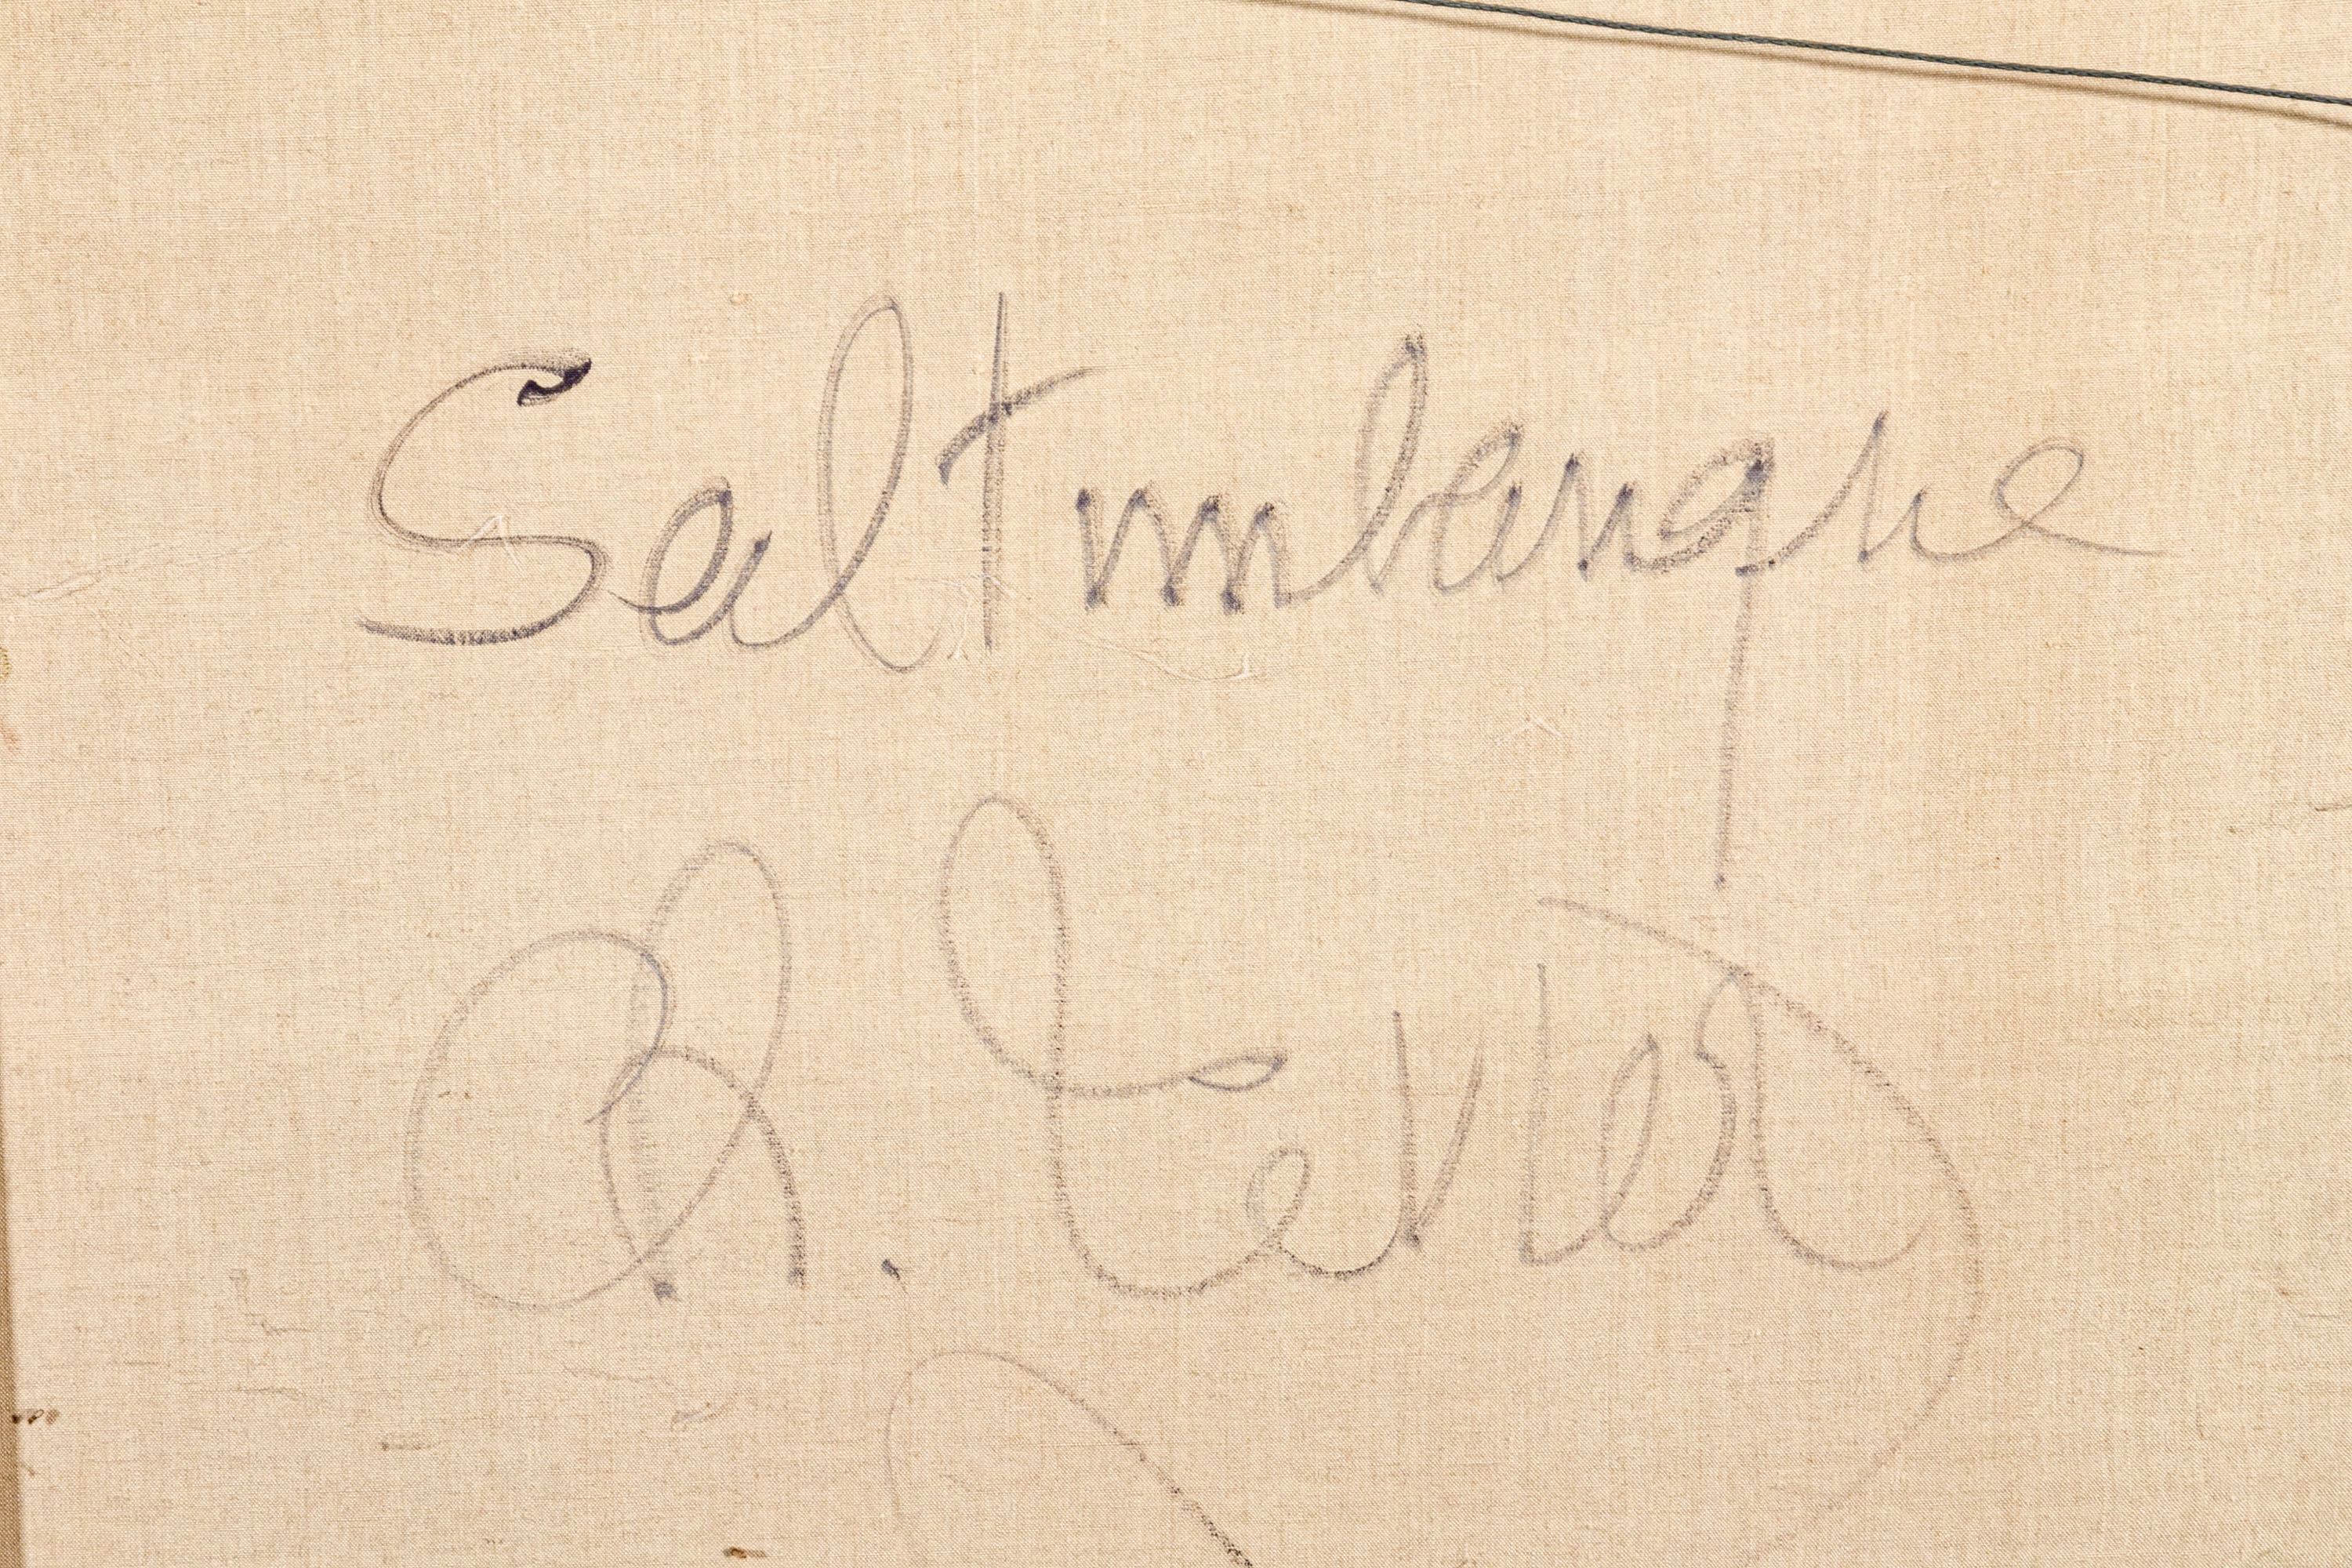 Saltimbanque
Ch. Levier